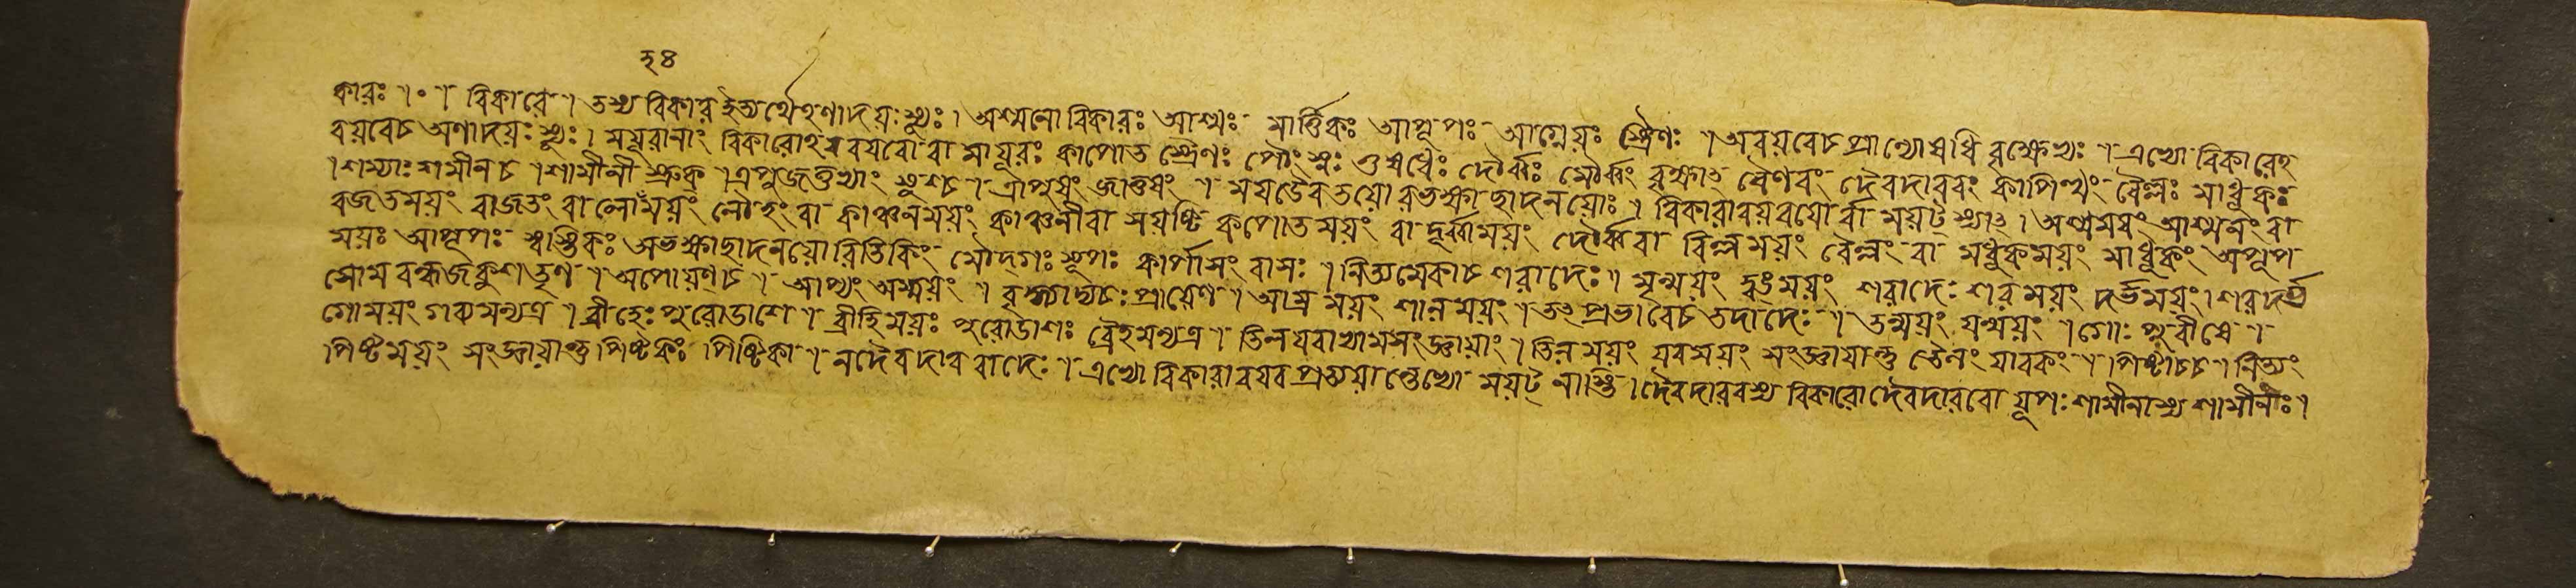 ২৪
কারঃ ।॰। বিকারে । তস্য বিকার ইত্যর্থেঽণাদয়ঃ স্যুঃ । অশ্মনো বিকারঃ আশ্মঃ মার্ত্তিকঃ আপূপঃ আগ্নেয়ঃ স্ত্রৈণঃ । অবয়বেচ প্রাণ্যোষধি বৃক্ষেভ্যঃ । এভ্যো বিকারেঽ
বয়বেচ অণাদয়ঃ স্যুঃ । ময়ূরানাং বিকারোঽবযবো বা মায়ূরঃ কাপোত স্ত্রৈণঃ পৌংস্নঃ ওষধেঃ দৌর্ব্বঃ মৌর্ব্বং বৃক্ষাৎ বৈণবং দৈবদারবং কাপিত্থং বৈল্লঃ মাধূকঃ
। শম্যাঃ শমীনচ । শামীনী স্রুক্ । ত্রপুজতুভ্যাং ষুশচ । ত্রাপুষং জাতুষং । ময়ডেবতয়ো রভক্ষ্যাছাদনয়োঃ । বিকারাবয়বযো র্বা ময়ট্ স্যাৎ । অশ্মমযং আশ্মনং বা
রজতময়ং রাজতং বা লোহময়ং লৌহং বা কাঞ্চনময়ং কাঞ্চনীবা সযষ্টি কপোতময়ং বা দূর্ব্বাময়ং দৌর্ব্বংবা বিল্লময়ং বৈল্লং বা মধূকময়ং মাধূকং অপূপ
ময়ঃ আপূপঃ স্বস্তিকঃ অভক্ষ্যাছাদনয়োরিতিকিং মৌদ্গঃ সূপঃ কার্পাসং বাসঃ । নিত্যমেকাচশরাদেঃ । মৃন্ময়ং ত্বঙ্ময়ং শরাদেঃ শরময়ং দর্ভময়ং । শরদর্ভ
সোম বল্বজকুশতৃণ । অপোয়ণ্চ । আপ্যং অম্ময়ং । বৃদ্ধ্যাদ্যচঃ প্রায়েণ । আম্রময়ং শালময়ং । তৎ প্রভাবৈচ তদাদেঃ । তন্ময়ং যন্ময়ং । গোঃ পুরীষে ।
গোময়ং গব্যমন্যত্র । ব্রীহেঃ পুরোডাশে । ব্রীহিময়ঃ পুরোডাশঃ ব্রৈহমন্যত্র । তিলযবাভ্যামসংজ্ঞায়াং । তিলময়ং যবময়ং সংজ্ঞায়ান্তু তৈলং যাবকং । পিষ্টাচ্চ । নিত্যং
পিষ্টময়ং সংজ্ঞায়ান্তু পিষ্টকঃ পিষ্টিকা । নদৈবদারবাদেঃ । এভ্যো বিকারাবযব প্রত্যয়ান্তেভ্যো ময়ট্ নাস্তি । দৈবদারবস্য বিকারো দৈবদারবো যূপঃ শামীনাস্য শামীনীঃ ।